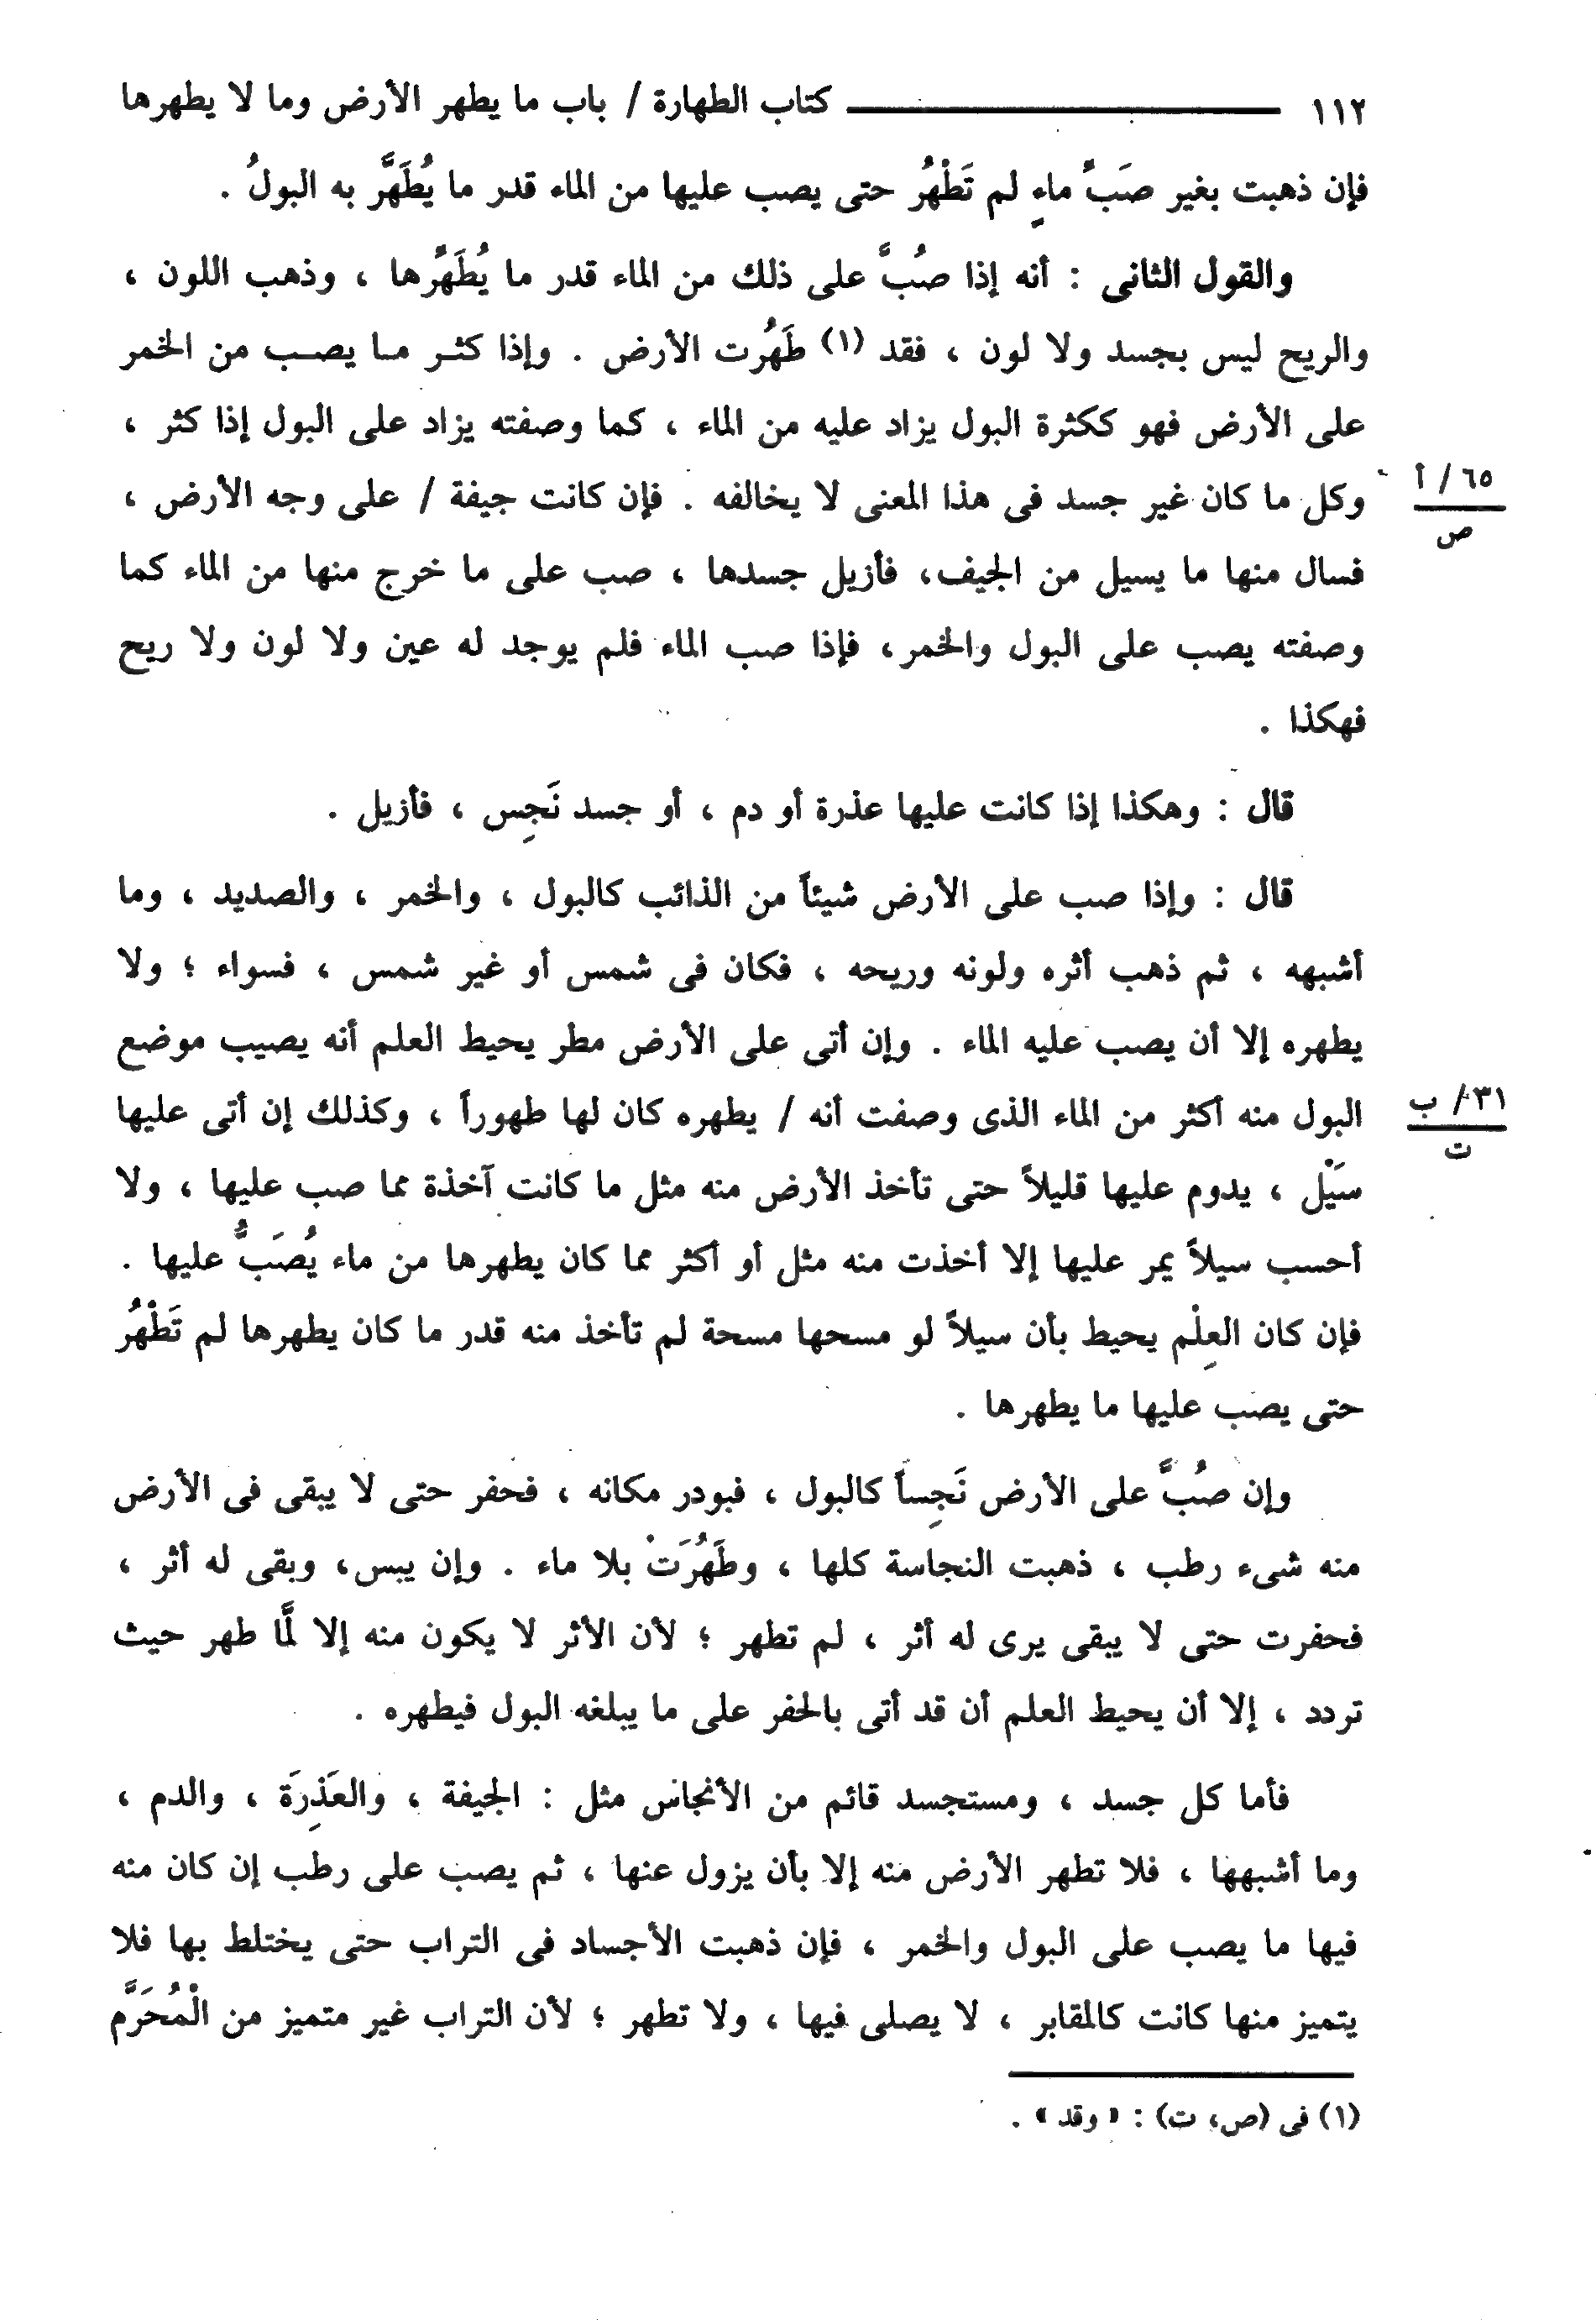 ١١٢ كتاب الطهارة / باب ما يطهر الأرض وما لا يطهرها
فإن ذهبت بغير صَبِّ ماءٍ لم تَطْهُر حتى يصب عليها من الماء قدر ما يُطَهَّر به البولُ .
والقول الثانى : أنه إذا صُبَّ على ذلك من الماء قدر ما يُطَهِّرها ، وذهب اللون ،
والريح ليس بجسد ولا لون ، فقد (١) طَهُرت الأرض . وإذا كثر ما يصب من الخمر
على الأرض فهو ككثرة البول يزاد عليه من الماء ، كما وصفته يزاد على البول إذا كثر ،
وكل ما كان غير جسد فى هذا المعنى لا يخالفه . فإن كانت جيفة / على وجه الأرض ،
٦٥ / أ
ص
فسال منها ما يسيل من الجيف، فأزيل جسدها ، صب على ما خرج منها من الماء كما
وصفته يصب على البول والخمر، فإذا صب الماء فلم يوجد له عين ولا لون ولا ريح
فهكذا .
قال : وهكذا إذا كانت عليها عذرة أو دم ، أو جسد نَجِس ، فأزيل .
قال : وإذا صب على الأرض شيئاً من الذائب كالبول ، والخمر ، والصديد ، وما
أشبهه ، ثم ذهب أثره ولونه وريحه ، فكان فى شمس أو غير شمس ، فسواء ؛ ولا
يطهره إلا أن يصب عليه الماء . وإن أتى على الأرض مطر يحيط العلم أنه يصيب موضع
البول منه أكثر من الماء الذى وصفت أنه / يطهره كان لها طهوراً ، وكذلك إن أتى عليها
٣١/ ب
ت
سَيْل ، يدوم عليها قليلاً حتى تأخذ الأرض منه مثل ما كانت آخذة مما صب عليها ، ولا
أحسب سيلاً يمر عليها إلا أخذت منه مثل أو أكثر مما كان يطهرها من ماء يُصَبُّ عليها .
فإن كان العِلْم يحيط بأن سيلاً لو مسحها مسحة لم تأخذ منه قدر ما كان يطهرها لم تَطْهُر
حتى يصب عليها ما يطهرها .
وإن صُبَّ على الأرض نَجِساً كالبول ، فبودر مكانه ، فحفر حتى لا يبقى فى الأرض
منه شىء رطب ، ذهبت النجاسة كلها ، وطَهُرَتْ بلا ماء . وإن يبس، وبقى له أثر ،
فحفرت حتى لا يبقى يرى له أثر ، لم تطهر ؛ لأن الأثر لا يكون منه إلا لَّما طهر حيث
تردد ، إلا أن يحيط العلم أن قد أتى بالحفر على ما يبلغه البول فيطهره .
فأما كل جسد ، ومستجسد قائم من الأنجاس مثل : الجيفة ، والعَذِرَة ، والدم ،
وما أشبهها ، فلا تطهر الأرض منه إلا بأن يزول عنها ، ثم يصب على رطب إن كان منه
فيها ما يصب على البول والخمر ، فإن ذهبت الأجساد فى التراب حتى يختلط بها فلا
يتميز منها كانت كالمقابر ، لا يصلى فيها ، ولا تطهر ؛ لأن التراب غير متميز من الْمُحَرَّم
(١) فى (ص، ت) : « وقد » .